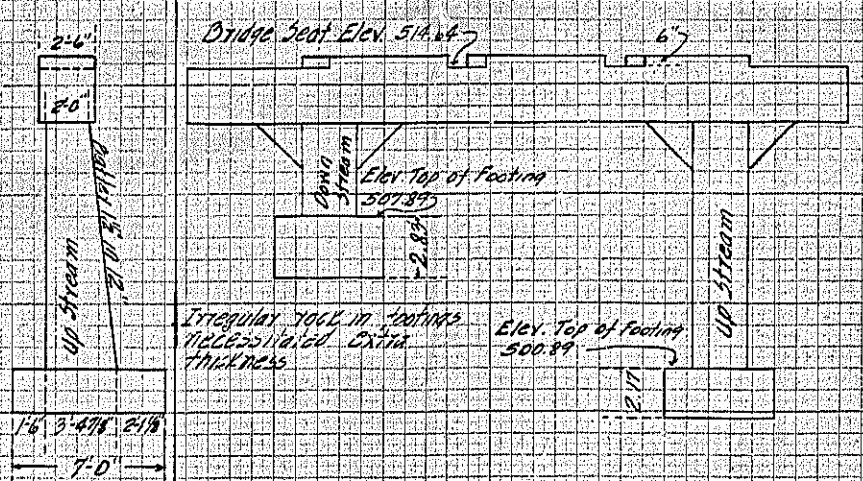 2'-6"
2'-0"
Up Stream
Batter 1½ to 12"
1'-6 3'-4⅞ 2'-1⅛
7'-0"
Bridge Seat Elev. 514.64
6"
Down
Stream
Elev. Top of Footing
507.89
2.83
Irregular rock in footings
necessitated extra
thickness
Elev. Top of Footing
500.89
2.17
Up Stream